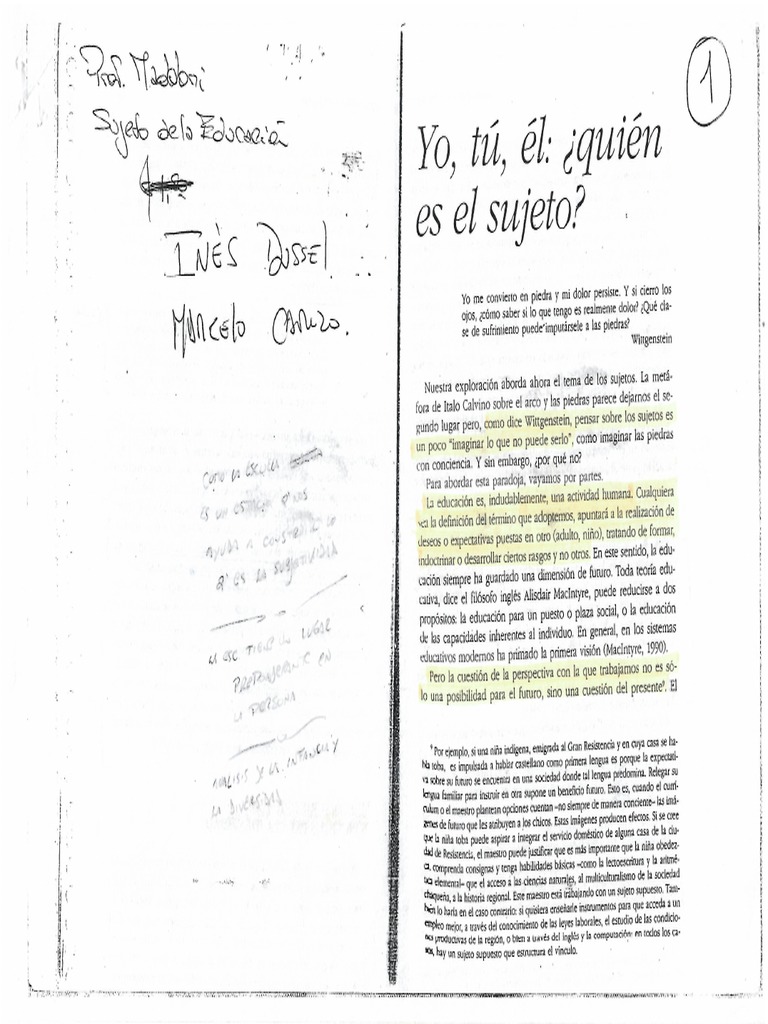 Prof. Maddoni
Sujeto de la Educación
INÉS DUSSEL
MARCELO CARUSO.
COMO LA ESCUELA
ES UN
AYUDA A CONSTRUIR LO
Q' ES LA SUBJETIVIDAD
LA ESC TIENE UN LUGAR
EN
LA PERSONA
ANALISIS DE LA INFANCIA Y
LA DIVERSIDAD
1
Yo, tú, él: ¿quién
es el sujeto?
Yo me convierto en piedra y mi dolor persiste. Y si cierro los
ojos, ¿cómo saber si lo que tengo es realmente dolor? ¿Qué cla-
se de sufrimiento puede imputársele a las piedras?
Wittgenstein
Nuestra exploración aborda ahora el tema de los sujetos. La metá-
fora de Italo Calvino sobre el arco y las piedras parece dejarnos el se-
gundo lugar pero, como dice Wittgenstein, pensar sobre los sujetos es
un poco "imaginar lo que no puede serlo", como imaginar las piedras
con conciencia. Y sin embargo, ¿por qué no?
Para abordar esta paradoja, vayamos por partes.
La educación es, indudablemente, una actividad humana. Cualquiera
sea la definición del término que adoptemos, apuntará a la realización de
deseos o expectativas puestas en otro (adulto, niño), tratando de formar,
indoctrinar o desarrollar ciertos rasgos y no otros. En este sentido, la edu-
cación siempre ha guardado una dimensión de futuro. Toda teoría edu-
cativa, dice el filósofo inglés Alisdair MacIntyre, puede reducirse a dos
propósitos: la educación para un puesto o plaza social, o la educación
de las capacidades inherentes al individuo. En general, en los sistemas
educativos modernos ha primado la primera visión (MacIntyre, 1990).
Pero la cuestión de la perspectiva con la que trabajamos no es só-
lo una posibilidad para el futuro, sino una cuestión del presente*. El
* Por ejemplo, si una niña indígena, emigrada al Gran Resistencia y en cuya casa se ha-
bla toba, es impulsada a hablar castellano como primera lengua es porque la expectati-
va sobre su futuro se encuentra en una sociedad donde tal lengua predomina. Relegar su
lengua familiar para instruir en otra supone un beneficio futuro. Esto es, cuando el currí-
culum o el maestro plantean opciones cuentan –no siempre de manera conciente– las imá-
genes de futuro que les atribuyen a los chicos. Estas imágenes producen efectos. Si se cree
que la niña toba puede aspirar a integrar el servicio doméstico de alguna casa de la ciu-
dad de Resistencia, el maestro puede justificar que es más importante que la niña obedez-
ca, comprenda consignas y tenga habilidades básicas –como la lectoescritura y la aritmé-
tica elemental– que el acceso a las ciencias naturales, al multiculturalismo de la sociedad
chaqueña, a la historia regional. Este maestro está trabajando con un sujeto supuesto. Tam-
bién lo haría en el caso contrario: si quisiera enseñarle instrumentos para que acceda a un
empleo mejor, a través del conocimiento de las leyes laborales, el estudio de las condicio-
nes productivas de la región, o bien a través del inglés y la computación: en todos los ca-
sos, hay un sujeto supuesto que estructura el vínculo.